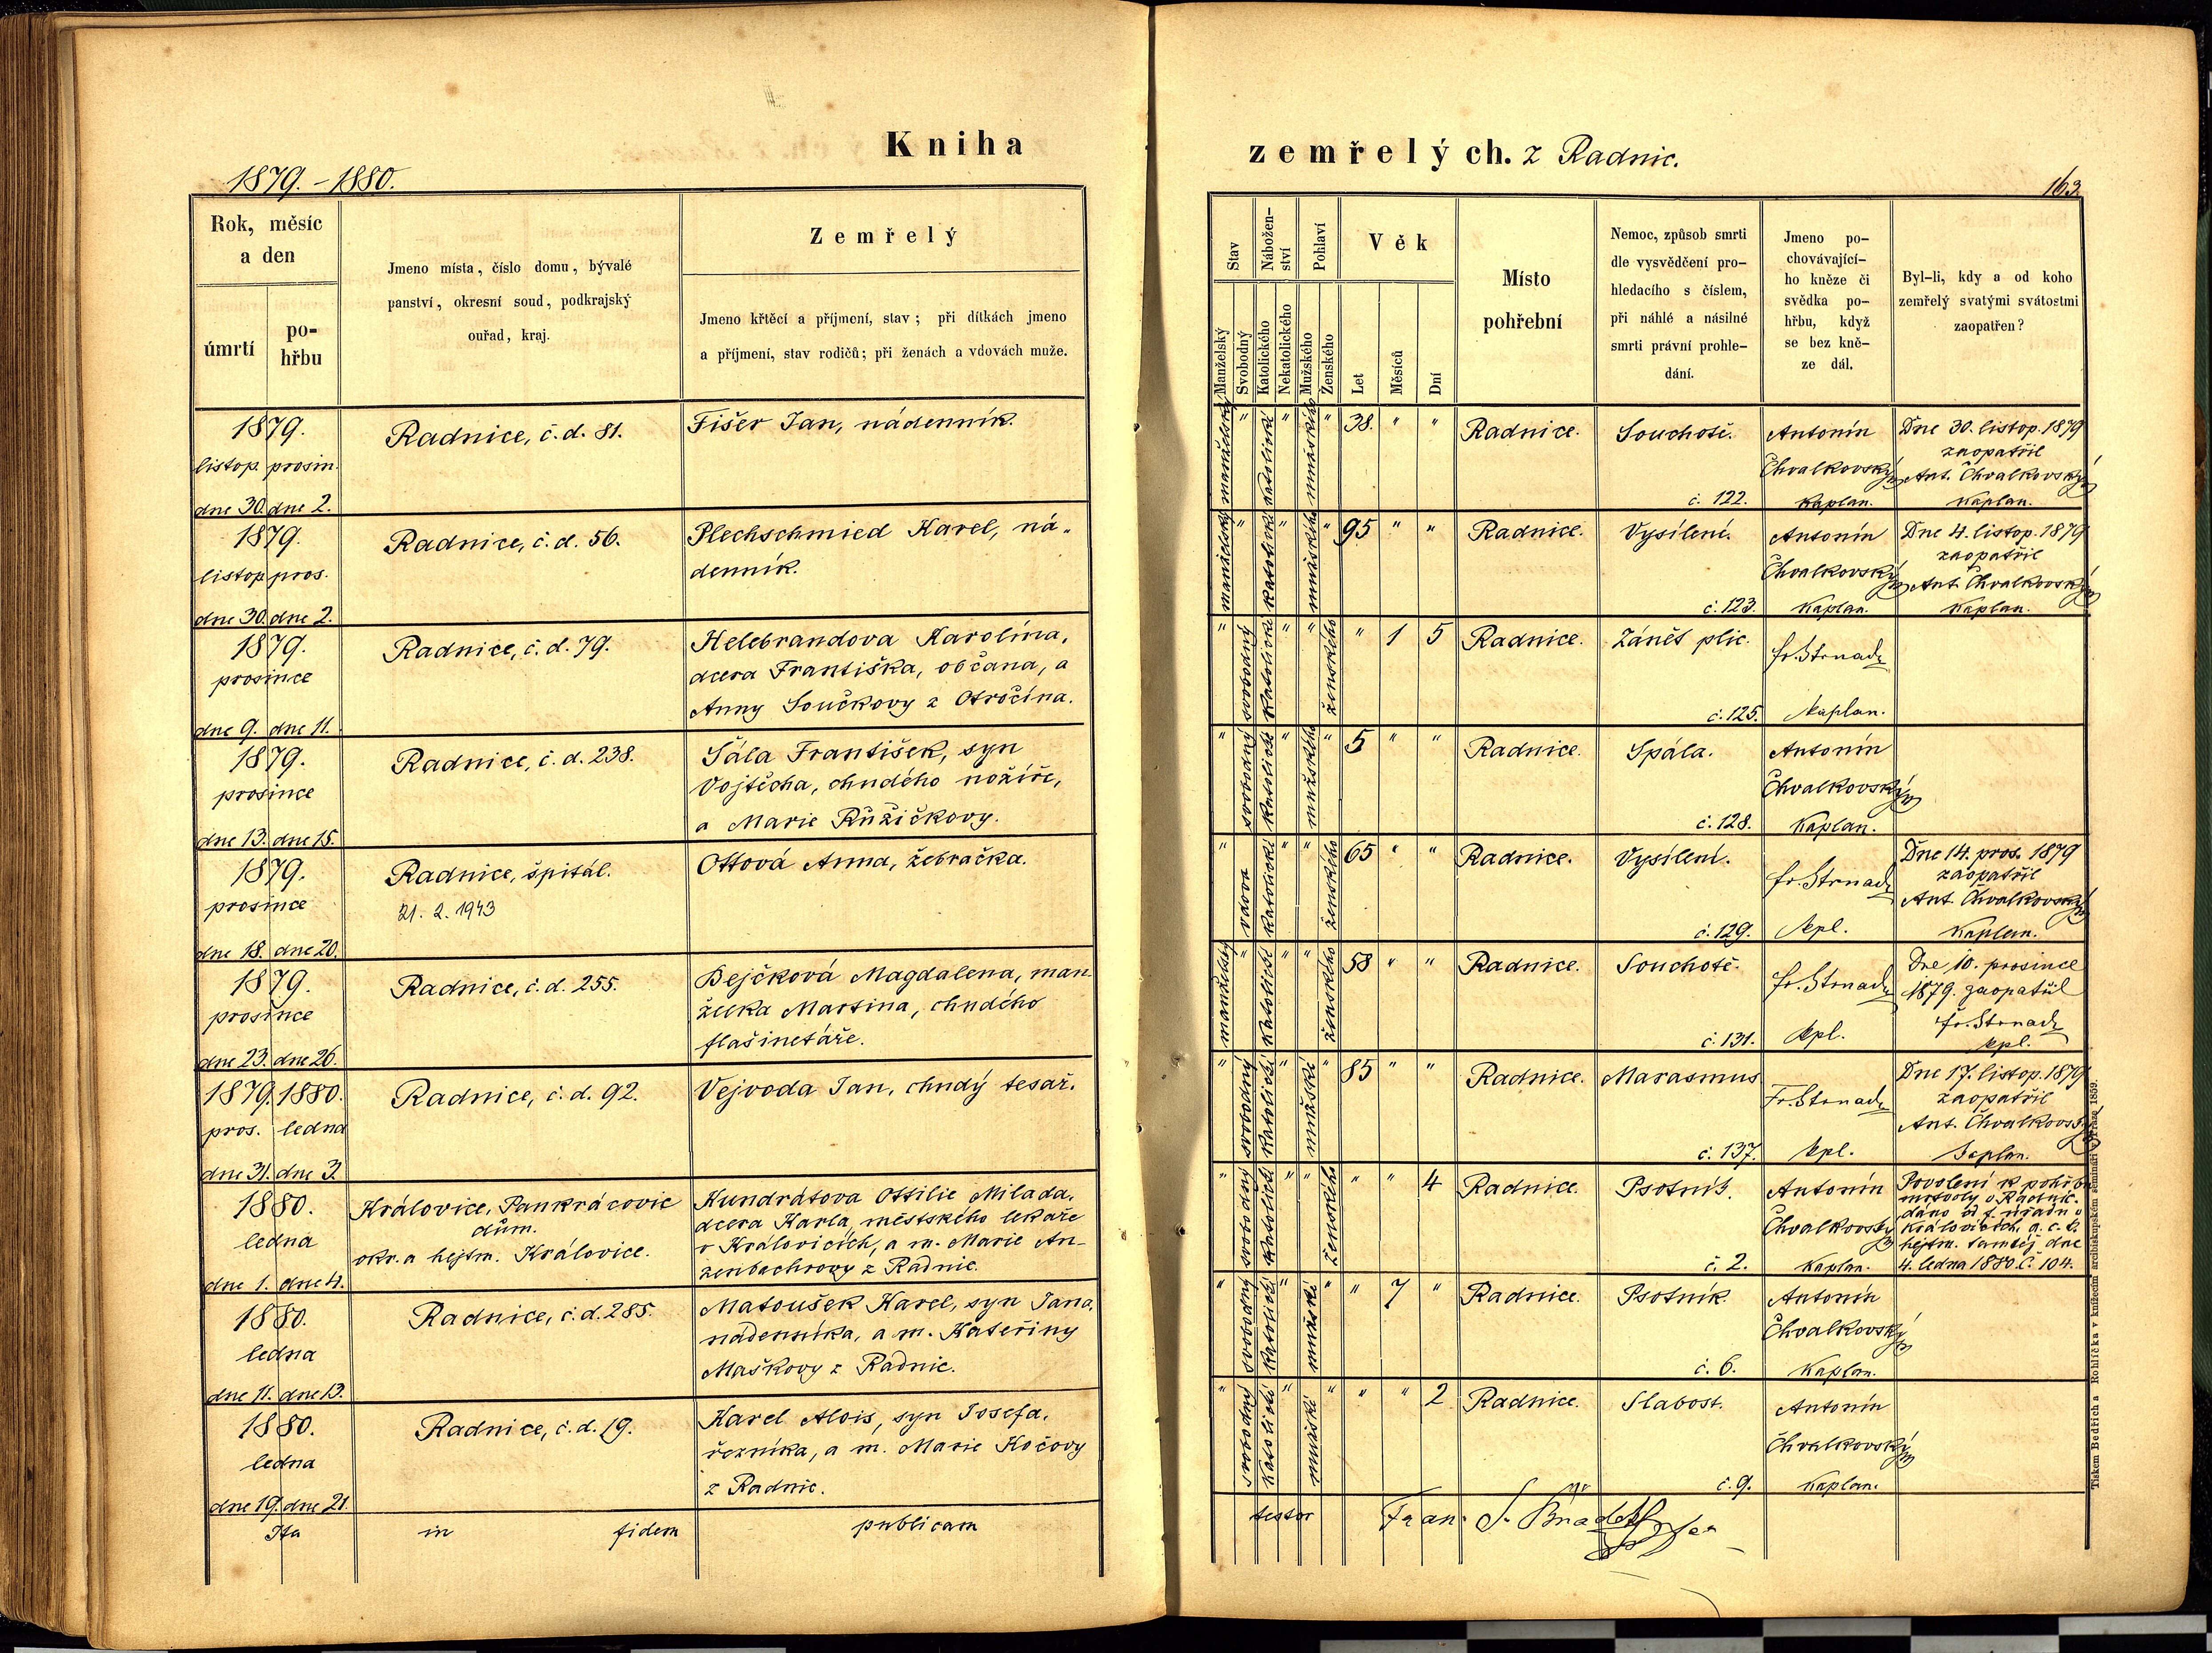 Kniha
1879. - 1880.
Rok, měsíc
a den
úmrtí
po-
hřbu
Jmeno místa, číslo domu, bývalé
panství, okresní soud, podkrajský
ouřad, kraj.
Zemřelý
Jmeno křtěcí a příjmení, stav; při dítkách jmeno
a příjmení, stav rodičů; při ženách a vdovách muže.
1879.
listop. prosin.
dne 30. dne 2.
Radnice, č. d. 81.
Fišer Jan, nádenník.
1879.
listop. pros.
dne 30. dne 2.
Radnice, č. d. 56.
Plechschmied Karel, ná-
denník.
1879.
prosince
dne 9. dne 11.
Radnice, č. d. 79.
Helebrandova Karolína,
dcera Františka, občana, a
Anny Součkovy z Otročína.
1879.
prosince
dne 13. dne 15.
Radnice, č. d. 238.
Šála František, syn
Vojtěcha, chudého nožíře,
a Marie Růžičkovy.
1879.
prosince
dne 18. dne 20.
Radnice, špitál.
21. 2. 1943
Ottová Anna, žebračka.
1879.
prosince
dne 23. dne 26.
Radnice, č. d. 255.
Bejčková Magdalena, man-
želka Martina, chudého
flašinetáře.
1879. 1880.
pros. ledna
dne 31. dne 2.
Radnice, č. d. 92.
Vejvoda Jan, chudý tesař.
1880.
ledna
dne 1. dne 4.
Královice, Pankrácovic
dům.
okr. a hejtm. Královice.
Kundrátova Ottilie Milada,
dcera Karla, městského lékaře
v Královicích, a m. Marie An-
zenbachrovy z Radnic.
1880.
ledna
dne 11. dne 13.
Radnice, č. d. 285.
Matoušek Karel, syn Jana,
nádenníka, a m. Kateřiny
Maškovy z Radnic.
1880.
ledna
dne 19. dne 21.
Radnice, č. d. 19.
Karel Alois, syn Josefa,
řezníka, a m. Marie Kočovy
z Radnic.
Ita in fidem publicam
zemřelých. z Radnic.
163
Stav
Nábožen-
ství
Pohlaví
Věk
Manželský
Svobodný
Katolického
Nekatolického
Mužského
Ženského
Let
Měsíců
Dní
Místo
pohřební
Nemoc, způsob smrti
dle vysvědčení pro-
hledacího s číslem,
při náhlé a násilné
smrti právní prohle-
dání.
Jmeno po-
chovávající-
ho kněze či
svědka po-
hřbu, když
se bez kně-
ze dál.
Byl-li, kdy a od koho
zemřelý svatými svátostmi
zaopatřen?
manželský " katolické " mužského " 38. " "
Radnice.
Souchotě.
č. 122.
Antonín
Chvalkovský
kaplan.
Dne 30. listop. 1879
zaopatřil
Ant. Chvalkovský
kaplan.
manželský " katolické " mužského " 95 " "
Radnice.
Vysílení.
č. 123.
Antonín
Chvalkovský
kaplan.
Dne 4. listop. 1879
zaopatřil
Ant. Chvalkovský
kaplan.
" svobodný katolické " " ženského " 1 5
Radnice.
Zánět plic.
č. 125.
fr. Strnad
kaplan.
" svobodný katolické " mužského " 5 " "
Radnice.
Spála.
č. 128.
Antonín
Chvalkovský
kaplan.
" vdova katolické " " ženského 65 " "
Radnice.
Vysílení.
č. 129.
fr. Strnad
kpl.
Dne 14. pros. 1879
zaopatřil
Ant. Chvalkovský
kaplan.
manželský " katolické " " ženského 58 " "
Radnice.
Souchotě.
č. 131.
fr. Strnad
kpl.
Dne 10. prosince
1879. zaopatřil
fr. Strnad
kpl.
" svobodný katolické " mužské " 85 " "
Radnice.
Marasmus
č. 137.
Fr. Strnad
kpl.
Dne 17. listop. 1879
zaopatřil
Ant. Chvalkovský
kaplan.
" svobodný katolické " " ženského " " 4
Radnice.
Psotník.
č. 2.
Antonín
Chvalkovský
kaplan.
Povolení k pohřbu
mrtvoly v Radnic.
dáno od f. úřadu v
Královicích, a c. k.
hejtm. tamtéž dne
4. ledna 1880. č. 104.
" svobodný katolické " mužské " " 7 "
Radnice.
Psotník.
č. 6.
Antonín
Chvalkovský
kaplan.
" svobodný katolické " mužské " " " 2
Radnice.
Slabost.
č. 9.
Antonín
Chvalkovský
kaplan.
testor Fran. S.
Tiskem Bedřicha Rohlíčka v knížecím arcibiskupském semináři v Praze 1859.